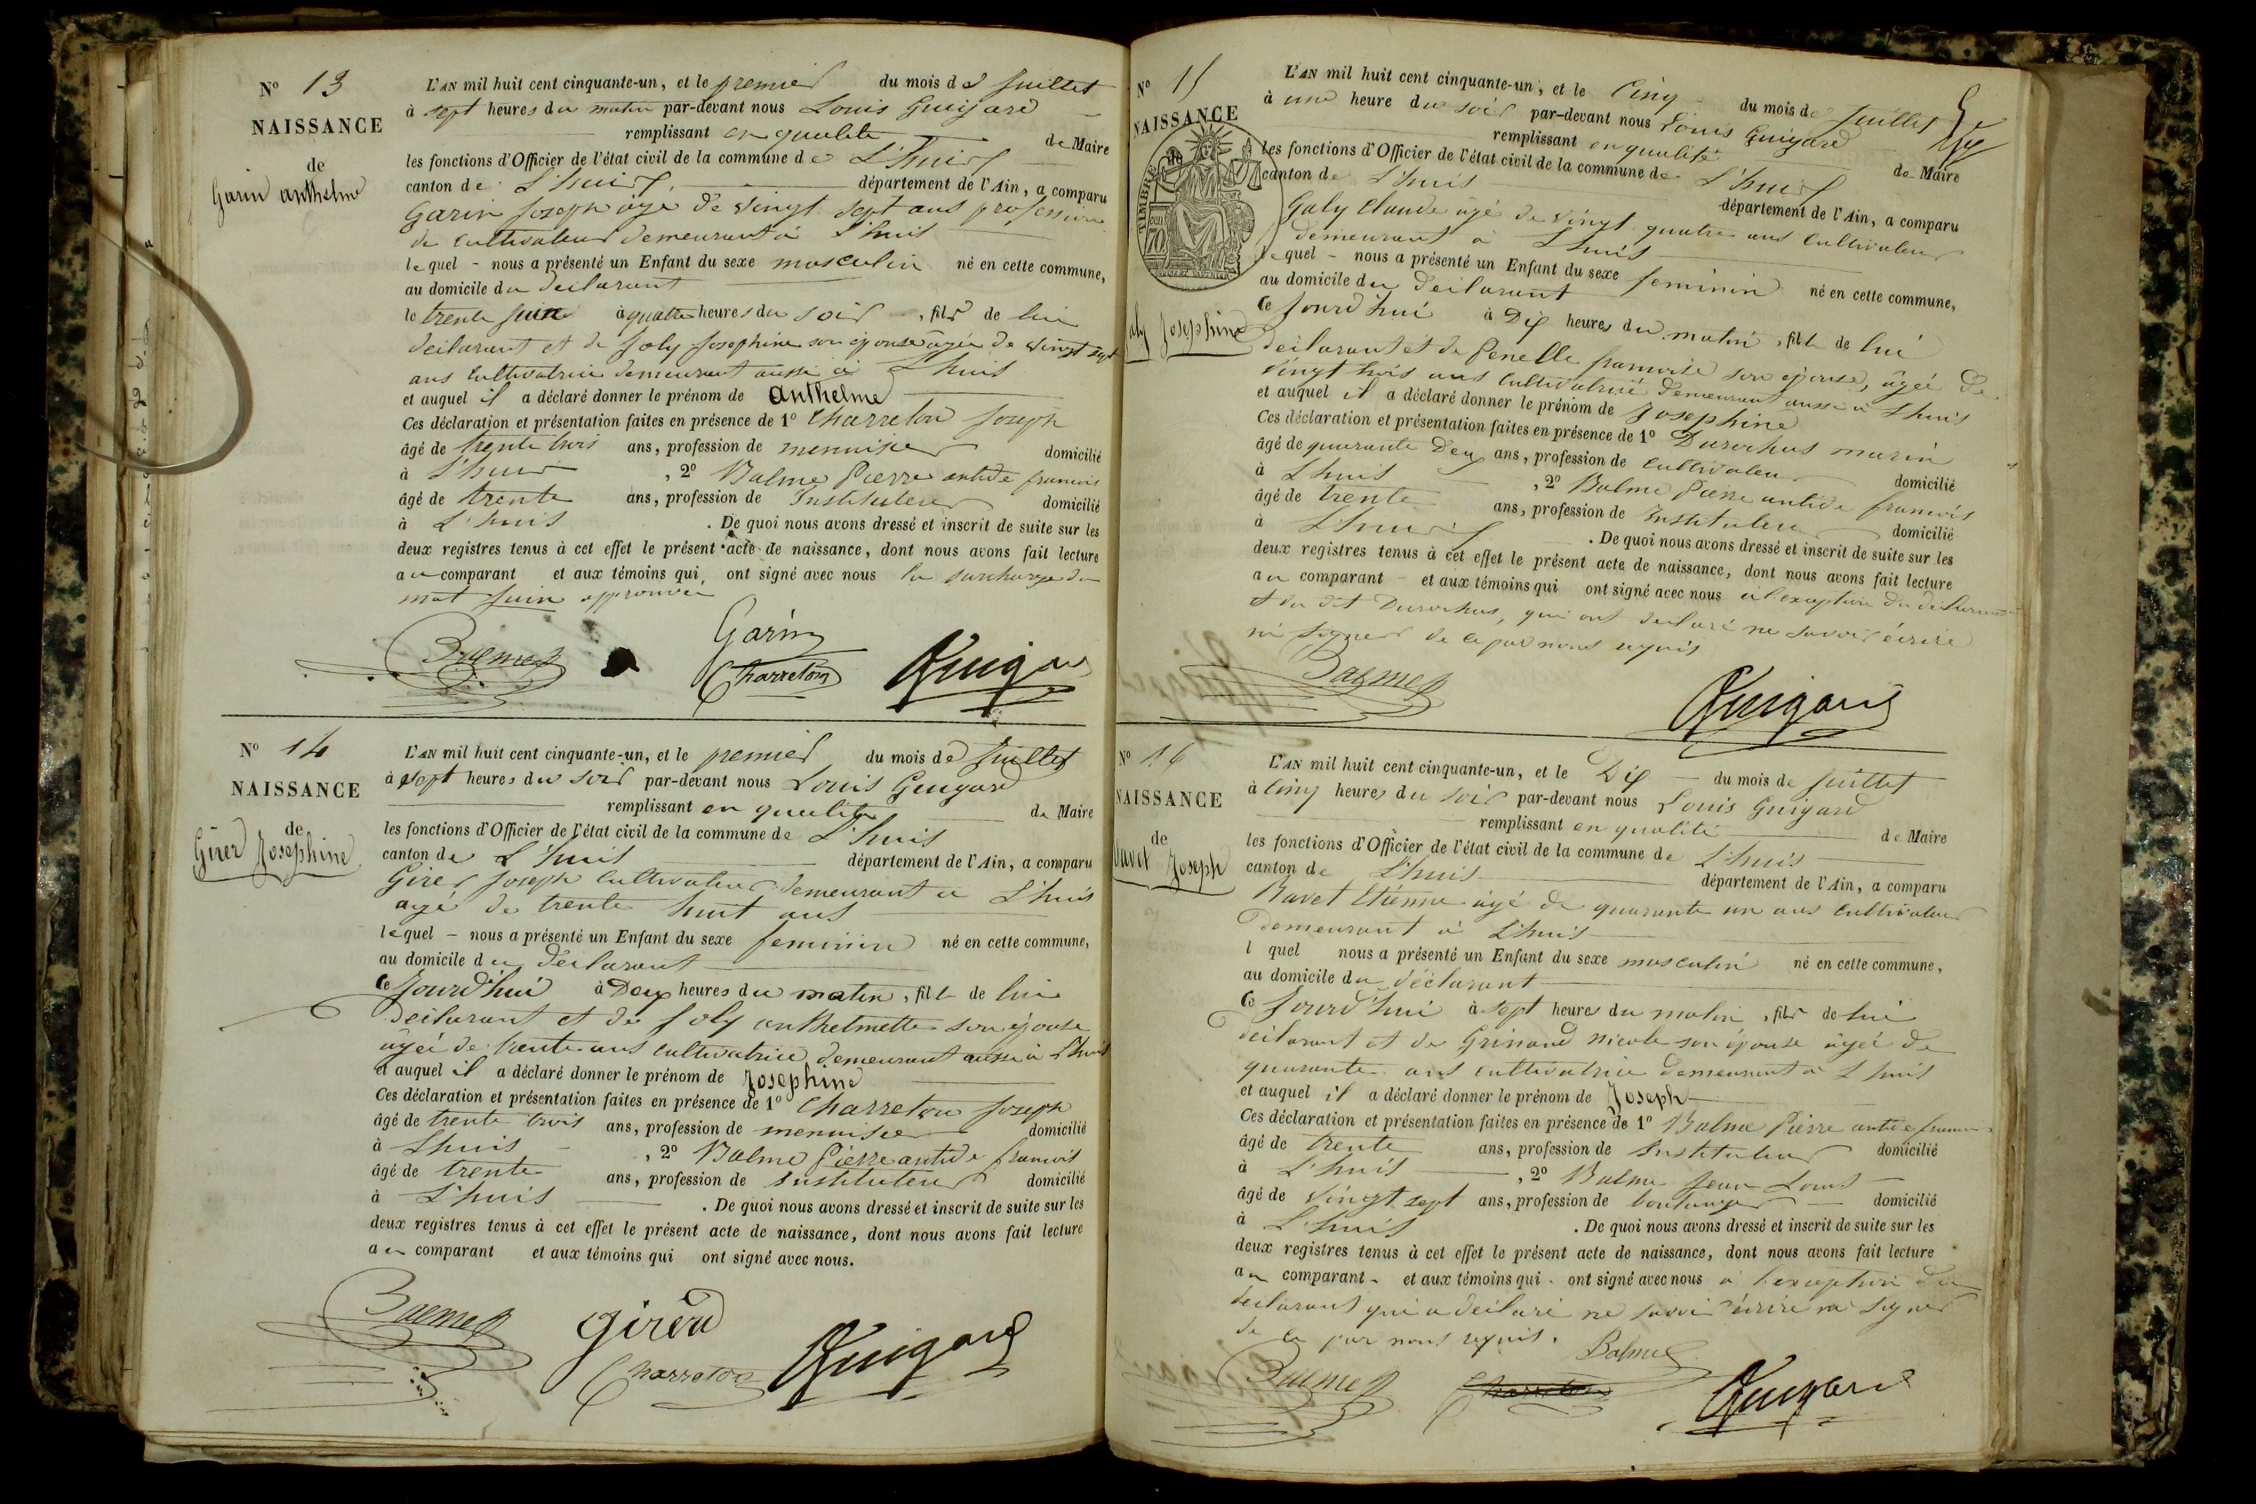 N° 13
NAISSANCE
de
Garin anthelme
L'AN mil huit cent cinquante-un, et le premier du mois de Juillet
à sept heures du matin par-devant nous Louis Guigard
remplissant en qualité de Maire
les fonctions d'Officier de l'état civil de la commune de L'huis
canton de L'huis département de l'Ain, a comparu
Garin Joseph âgé de vingt sept ans profession
de cultivateur demeurant à L'huis
lequel - nous a présenté un Enfant du sexe masculin né en cette commune,
au domicile du déclarant
le trente Juin à quatre heures du soir, fils de lui
déclarant et de Joly Josephine son épouse âgée de vingt sept
ans cultivatrice demeurant aussi à L'huis
et auquel il a déclaré donner le prénom de Anthelme
Ces déclaration et présentation faites en présence de 1° Charreton Joseph
âgé de trente trois ans, profession de menuisier domicilié
à L'huis, 2° Balme Pierre antide francois
âgé de trente ans, profession de Instituteur domicilié
à L'huis. De quoi nous avons dressé et inscrit de suite sur les
deux registres tenus à cet effet le présent acte de naissance, dont nous avons fait lecture
au comparant et aux témoins qui ont signé avec nous la surcharge du
mot Juin approuvée
Balme Garin
Charreton Guigard
N° 14
NAISSANCE
de
Girer Josephine
L'AN mil huit cent cinquante-un, et le premier du mois de Juillet
à sept heures du soir par-devant nous Louis Guigard
remplissant en qualité de Maire
les fonctions d'Officier de l'état civil de la commune de L'huis
canton de L'huis département de l'Ain, a comparu
Girer Joseph cultivateur demeurant à L'huis
âgé de trente huit ans
lequel - nous a présenté un Enfant du sexe feminin né en cette commune,
au domicile du déclarant
ce Jourd'hui à Deux heures du matin, fille de lui
déclarant et de Joly anthelmette son épouse
âgée de trente ans cultivatrice demeurant aussi à L'huis
et auquel il a déclaré donner le prénom de Josephine
Ces déclaration et présentation faites en présence de 1° Charreton Joseph
âgé de trente trois ans, profession de menuisier domicilié
à L'huis, 2° Balme Pierre antide francois
âgé de trente ans, profession de Instituteur domicilié
à L'huis. De quoi nous avons dressé et inscrit de suite sur les
deux registres tenus à cet effet le présent acte de naissance, dont nous avons fait lecture
au comparant et aux témoins qui ont signé avec nous.
Balme Girer
Charreton Guigard
N° 15
NAISSANCE
de
TIMBRE
70
Galy Josephine
L'AN mil huit cent cinquante-un, et le Cinq du mois de Juillet
à une heure du soir par-devant nous Louis Guigard
remplissant en qualité de Maire
les fonctions d'Officier de l'état civil de la commune de L'huis
canton de L'huis département de l'Ain, a comparu
Galy Claude âgé de vingt quatre ans cultivateur
demeurant à L'huis
lequel - nous a présenté un Enfant du sexe feminin né en cette commune,
au domicile du déclarant
ce Jourd'hui à Dix heures du matin, fille de lui
déclarant et de Penelle francoise son épouse, âgée de
vingt trois ans cultivatrice demeurant aussi à L'huis
et auquel il a déclaré donner le prénom de Josephine
Ces déclaration et présentation faites en présence de 1° Durochas marin
âgé de quarante Deux ans, profession de cultivateur domicilié
à L'huis, 2° Balme Pierre antide francois
âgé de trente ans, profession de Instituteur domicilié
à L'huis. De quoi nous avons dressé et inscrit de suite sur les
deux registres tenus à cet effet le présent acte de naissance, dont nous avons fait lecture
au comparant - et aux témoins qui ont signé avec nous à l'exception du déclarant
et du dit Durochas, qui ont déclaré ne savoir écrire
ni signer de ce par nous requis
Balme Guigard
N° 16
NAISSANCE
de
Ravet Joseph
L'AN mil huit cent cinquante-un, et le Dix du mois de Juillet
à cinq heures du soir par-devant nous Louis Guigard
remplissant en qualité de Maire
les fonctions d'Officier de l'état civil de la commune de L'huis
canton de L'huis département de l'Ain, a comparu
Ravet Etienne âgé de quarante un ans cultivateur
demeurant à L'huis
l quel nous a présenté un Enfant du sexe masculin né en cette commune,
au domicile du déclarant
ce Jourd'hui à sept heures du matin, fils de lui
déclarant et de Grinand Nicole son épouse âgée de
quarante ans cultivatrice demeurant à L'huis
et auquel il a déclaré donner le prénom de Joseph
Ces déclaration et présentation faites en présence de 1° Balme Pierre antide francois
âgé de trente ans, profession de Instituteur domicilié
à L'huis, 2° Balme Jean Louis
âgé de vingt sept ans, profession de boulanger domicilié
à L'huis. De quoi nous avons dressé et inscrit de suite sur les
deux registres tenus à cet effet le présent acte de naissance, dont nous avons fait lecture
au comparant - et aux témoins qui ont signé avec nous à l'exception du
déclarant qui a déclaré ne savoir écrire ni signer
de ce par nous requis. Balme
Balme Charreton Guigard